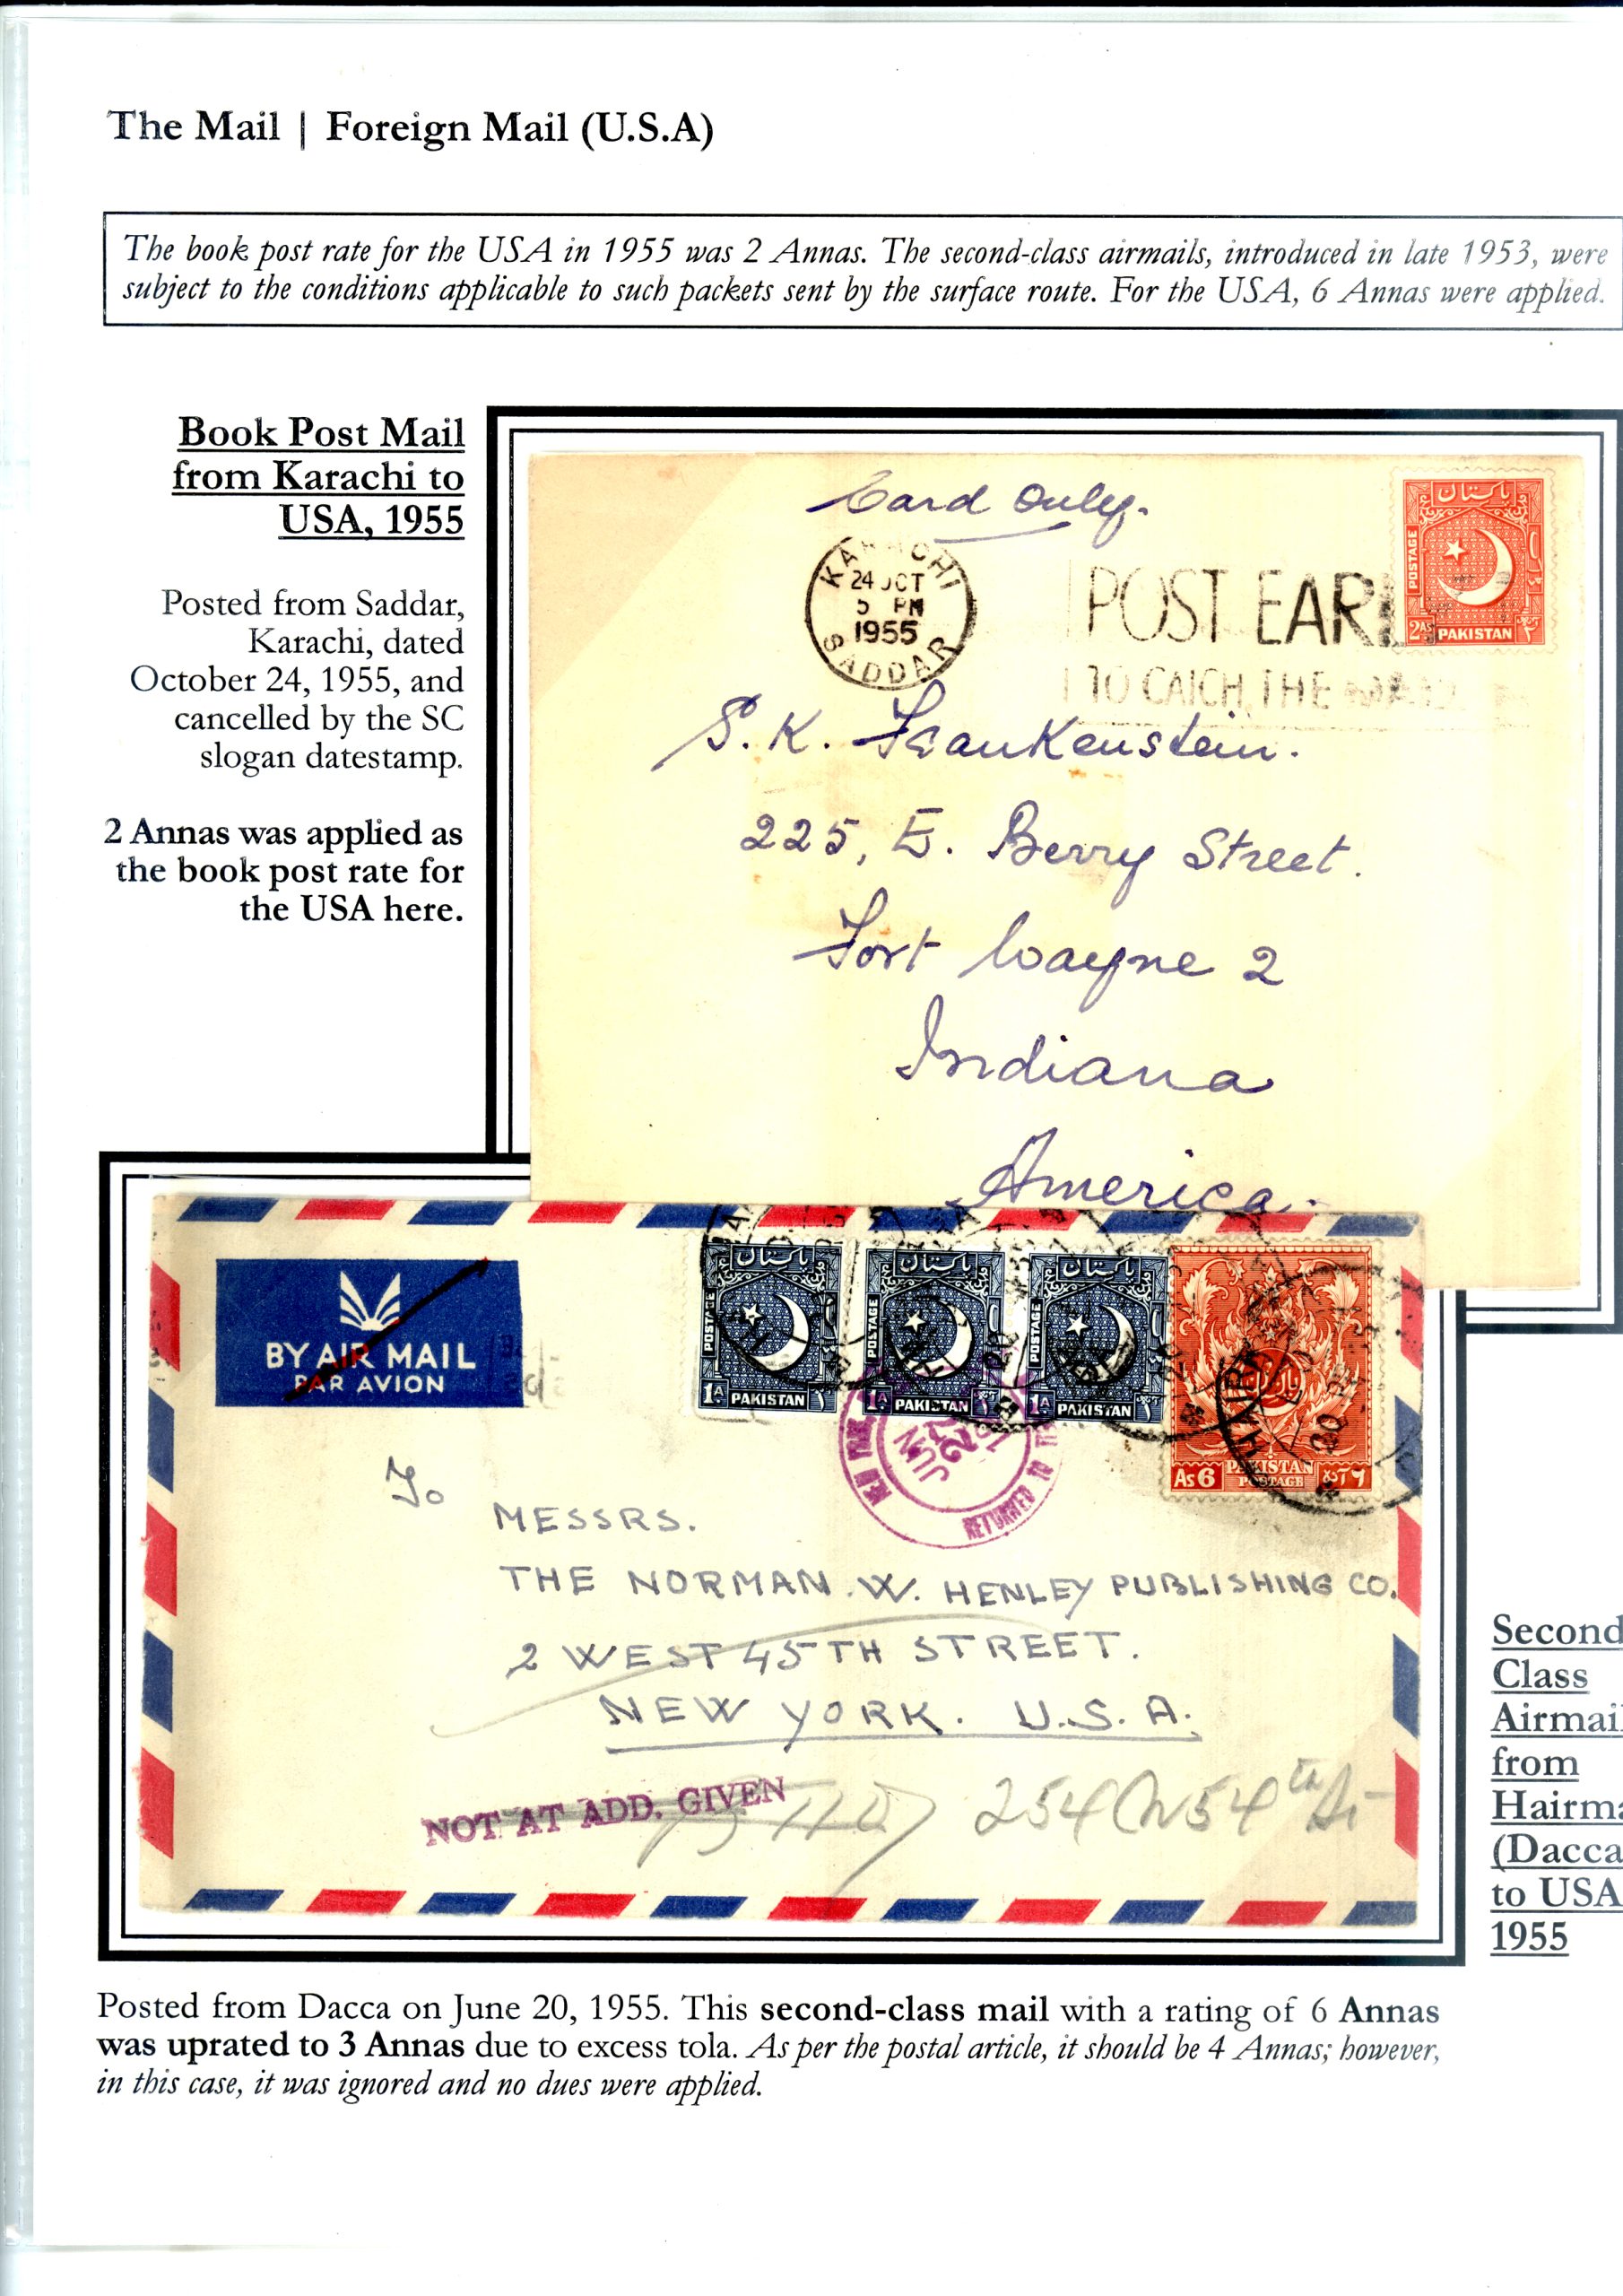 The Mail | Foreign Mail (U.S.A)
The book post rate for the USA in 1955 was 2 Annas. The second-class airmails, introduced in late 1953, were
subject to the conditions applicable to such packets sent by the surface route. For the USA, 6 Annas were applied.
Book Post Mail
from Karachi to
USA, 1955
Posted from Saddar,
Karachi, dated
October 24, 1955, and
cancelled by the SC
slogan datestamp.
2 Annas was applied as
the book post rate for
the USA here.
Card Only.
پاکستان
POSTAGE
2As
PAKISTAN
KARACHI
24 OCT
5 PM
1955
SADDAR
POST EARL
TO CATCH THE
S. K. Frankenstein.
225, E. Berry Street.
Fort Wayne 2
Indiana
America.
BY AIR MAIL
PAR AVION
پاکستان
POSTAGE
1A
PAKISTAN
پاکستان
POSTAGE
1A
PAKISTAN
پاکستان
POSTAGE
1A
PAKISTAN
As 6
PAKISTAN
POSTAGE
NEW
JUN
RETURNED TO
To
MESSRS.
THE NORMAN. W. HENLEY PUBLISHING CO.
2 WEST 45TH STREET.
NEW YORK. U.S.A.
NOT AT ADD. GIVEN
254 W 54th St
Second
Class
Airmail
from
Hairma
(Dacca
to USA
1955
Posted from Dacca on June 20, 1955. This second-class mail with a rating of 6 Annas
was uprated to 3 Annas due to excess tola. As per the postal article, it should be 4 Annas; however,
in this case, it was ignored and no dues were applied.